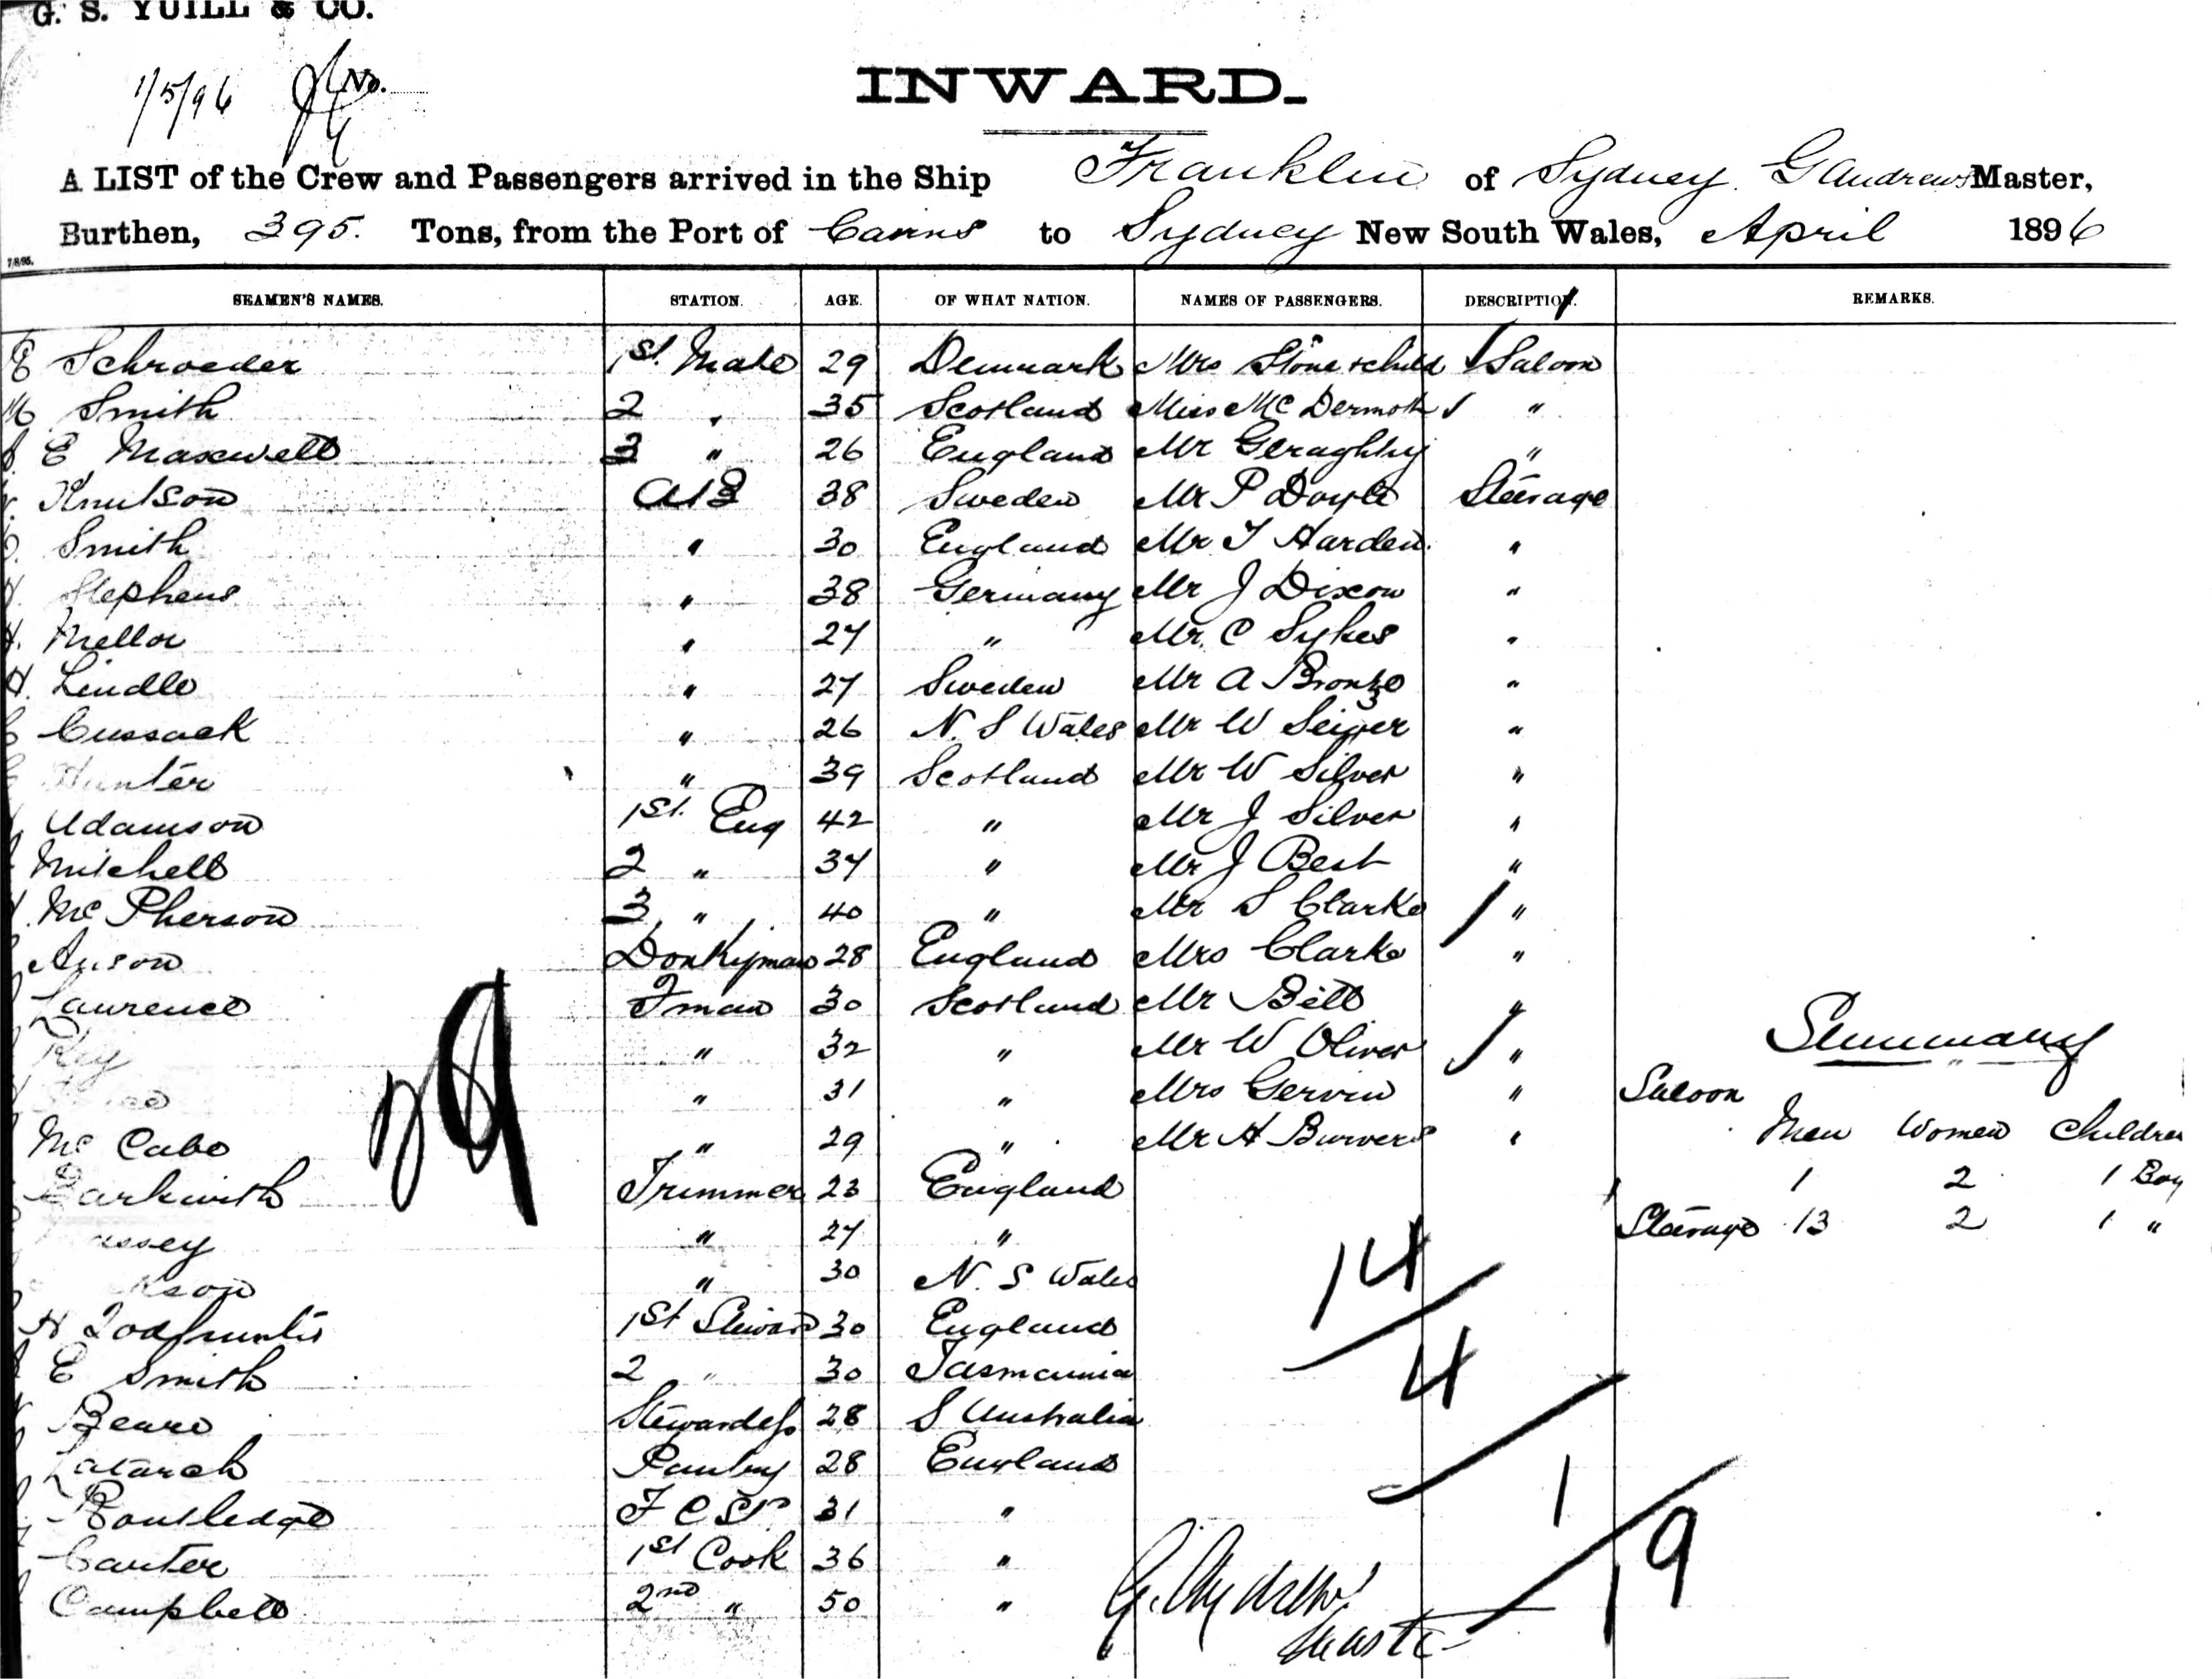 G. S. YUILL & CO.
1/5/96 No.
INWARD.
A LIST of the Crew and Passengers arrived in the Ship Franklin of Sydney G Andrews Master,
Burthen, 395. Tons, from the Port of Cairns to Sydney New South Wales, April 1896
7/8/95.
SEAMEN'S NAMES. STATION. AGE. OF WHAT NATION. NAMES OF PASSENGERS. DESCRIPTION. REMARKS.
E Schroeder 1st. Mate 29 Denmark Mrs Stone & child Saloon
Smith 2 " 35 Scotland Miss McDermott "
E Maxwell 3 " 26 England Mr Geraghty "
Knutson AB 38 Sweden Mr P Doyle Steerage
Smith " 30 England Mr T Harden "
Stephens " 38 Germany Mr J Dixon "
H. Mellor " 27 " Mr. C Sykes "
H. Lindle " 27 Sweden Mr A Bronzo "
Cussack " 26 N. S Wales Mr W "
Hunter " 39 Scotland Mr W Silver "
Adamson 1st. Eng 42 " Mr J Silver "
Mitchell 2 " 37 " Mr J Best "
McPherson 3 " 40 " Mr S Clarke "
Anson Donkyman 28 England Mrs Clarke "
Laurence Fman 30 Scotland Mr Bell "
" 32 " Mr W Oliver " Summary
" 31 " Mrs Gervin " Saloon
McCabe " 29 " Mr H " Men Women Children
Barkwith Trimmer 23 England 1 2 1 Boy
" 27 " Steerage 13 2 1 "
" 30 N. S Wales 14
H 1st Steward 30 England
E Smith 2 " 30 Tasmania 4
Beare Stewardess 28 S Australia
Latarch Pantry 28 England
Routledge F C St. 31 " 1
Canter 1st Cook 36 " 19
Campbell 2nd " 50 " G. Andrews
Master